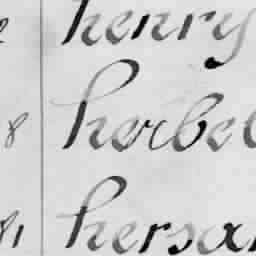 henry
8 herbel
81 hersan